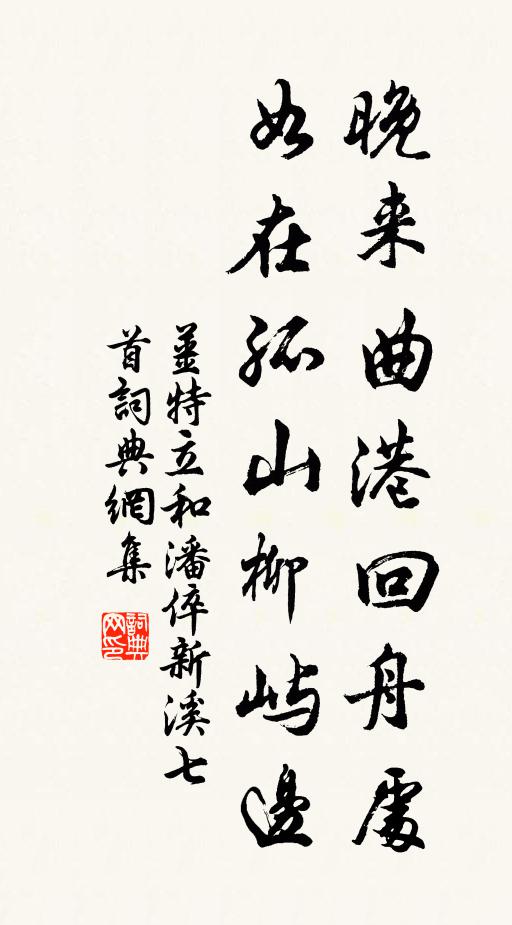 晚来曲港回舟處
如在孤山柳屿邊
薑特立和潘倅新溪七
首詞典網集
詞典网印